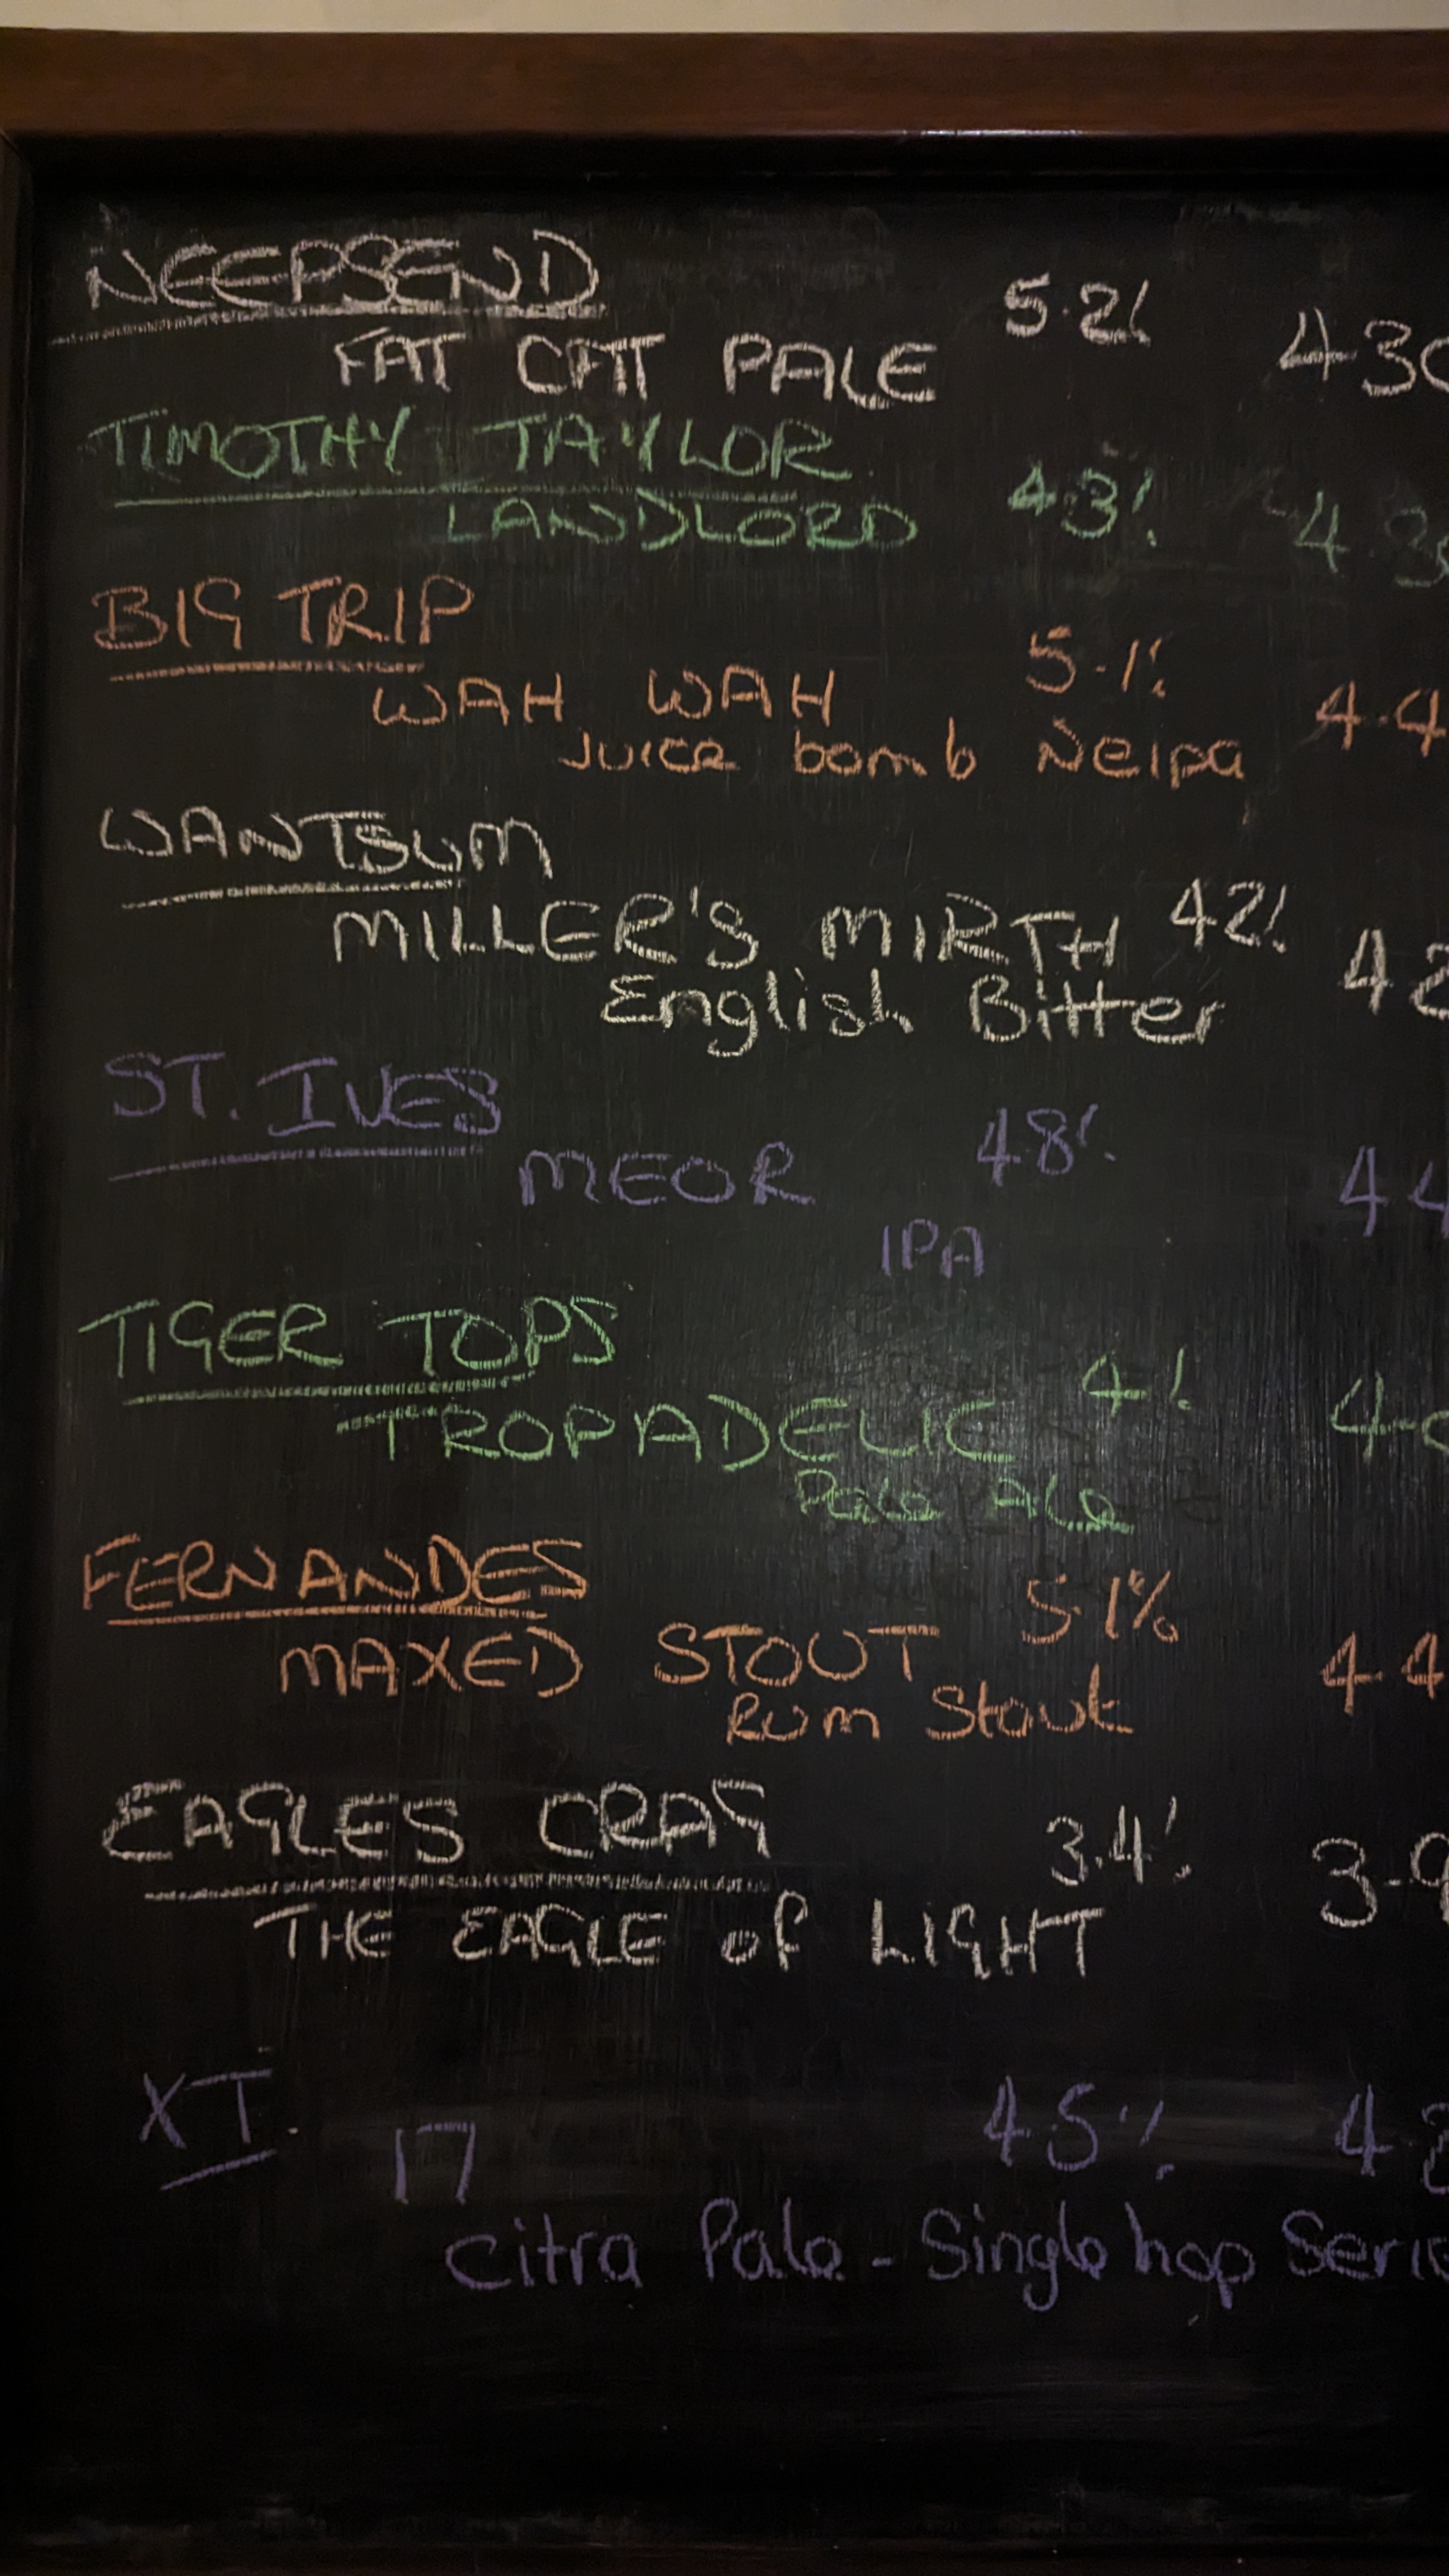 NEEPSEND
FAT CAT PALE 5.2% 430
TIMOTHY TAYLOR
LANDLORD 4.3% 4.30
BIG TRIP
WAH WAH 5.1% 4.4
Juice bomb Neipa
WANTSUM
MILLER'S MIRTH 4.2% 4.2
English Bitter
ST. IVES
MEOR 4.8% 4.4
IPA
TIGER TOPS
TROPADELIC 4% 4.0
Pale Ale
FERNANDES
MAXED STOUT 5.1% 4.4
Rum Stout
EAGLES CRAG
THE EAGLE OF LIGHT 3.4% 3.9
XT.
17 4.5%
Citra Pale - Single hop Serie